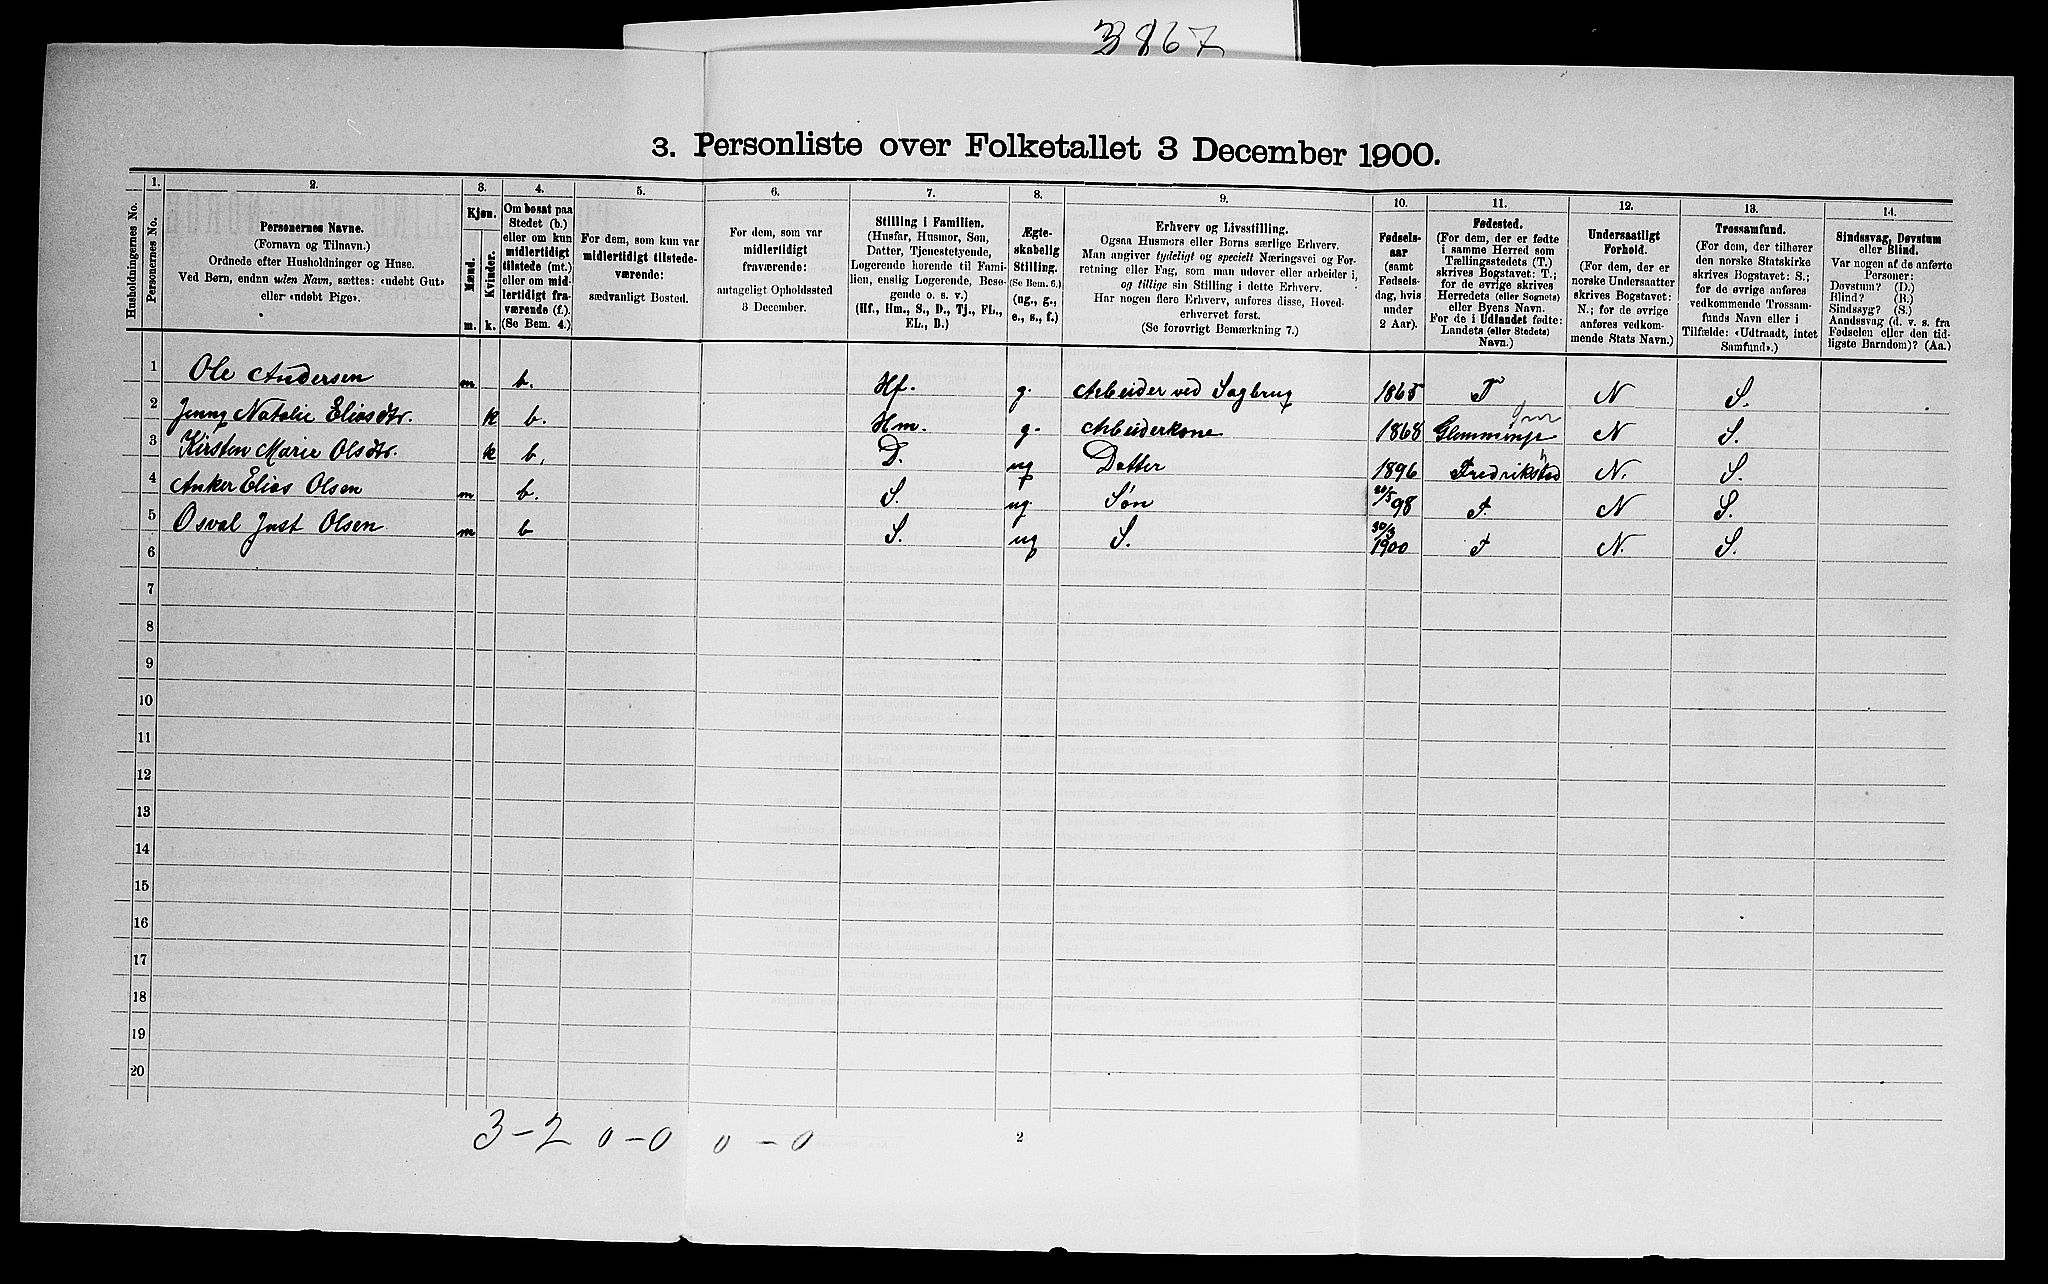 3867
3. Personliste over Folketallet 3 December 1900.
Husholdningernes No.
1.
Personernes No.
2.
Personernes Navne.
(Fornavn og Tilnavn.)
Ordnede efter Husholdninger og Huse.
Ved Børn, endnu uden Navn, sættes: «udøbt Gut»
eller «udøbt Pige».
3.
Kjøn.
Mænd.
Kvinder.
m. k.
4.
Om bosat paa
Stedet (b.)
eller om kun
midlertidigt
tilstede (mt.)
eller om mid-
lertidigt fra-
værende (f.).
(Se Bem. 4.)
5.
For dem, som kun var
midlertidigt tilstede-
værende:
sædvanligt Bosted.
6.
For dem, som var
midlertidigt
fraværende:
antageligt Opholdssted
3 December.
7.
Stilling i Familien.
(Husfar, Husmor, Søn,
Datter, Tjenestetyende,
Logerende hørende til Fami-
lien, enslig Logerende, Besø-
gende o. s. v.)
(Hf., Hm., S., D., Tj., FL.,
EL., B.)
8.
Ægte-
skabelig
Stilling.
(Se Bem. 6.)
(ug., g.,
e., s., f.)
9.
Erhverv og Livsstilling.
Ogsaa Husmors eller Børns særlige Erhverv.
Man angiver tydeligt og specielt Næringsvei og For-
retning eller Fag, som man udøver eller arbeider i,
og tillige sin Stilling i dette Erhverv.
Har nogen flere Erhverv, anføres disse, Hoved-
erhvervet først.
(Se forøvrigt Bemærkning 7.)
10.
Fødsels-
aar
(samt
Fødsels-
dag, hvis
under
2 Aar).
11.
Fødested.
(For dem, der er fødte
i samme Herred som
Tællingsstedets (T.)
skrives Bogstavet: T.;
for de øvrige skrives
Herredets (eller Sognets)
eller Byens Navn.
For de i Udlandet fødte:
Landets (eller Stedets)
Navn.)
12.
Undersaatligt
Forhold.
(For dem, der er
norske Undersaatter
skrives Bogstavet:
N.; for de øvrige
anføres vedkom-
mende Stats Navn.)
13.
Trossamfund.
(For dem, der tilhører
den norske Statskirke
skrives Bogstavet: S.;
for de øvrige anføres
vedkommende Trossam-
funds Navn eller i
Tilfælde: «Udtraadt, intet
Samfund».)
14.
Sindssvag, Døvstum
eller Blind.
Var nogen af de anførte
Personer:
Døvstum? (D.)
Blind? (B.)
Sindssyg? (S.)
Aandssvag (d. v. s. fra
Fødselen eller den tid-
ligste Barndom)? (Aa.)
1 Ole Andersen m b. Hf. g. Arbeider ved Sagbrug 1865 T N S.
2 Jenny Natalie Eliasdtr. k b. Hm. g. Arbeiderkone 1868 Glemminge N S.
3 Kirsten Marie Olsdtr. k b. D. ug Datter 1896 Fredrikstad N. S.
4 Anker Elias Olsen m b. S. ug. Søn 20/5 98 T. N S.
5 Osval Just Olsen m b S. ug S. 30/3 1900 T N. S.
6
7
8
9
10
11
12
13
14
15
16
17
18
19
20
3 - 2 0 - 0 0 - 0
2